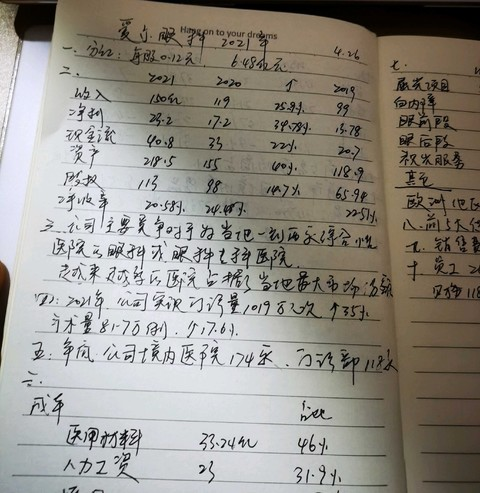 Hang on to your dreams
爱尔眼科 2021年
4.26
一、分红：每股0.12元 6.48亿元
二、
2021 2020 ↑ 2019
收入 150亿 119 25.9% 99
净利 23.2 17.2 34.78% 13.78
现金流 40.8 33 22% 20.7
资产 218.5 155 40% 118.9
股权 113 98 14.7% 65.94
净收率 20.58% 24.48% 22.51%
三、公司主要竞争对手为当地一到两家综合性
医院的眼科或眼科专科医院
医院占据了当地最大市场份额
四：2021年，公司实现门诊量1019万人次 ↑35%
手术量81.7万例，↑17.6%
五：年内，公司境内医院174家，门诊部118家
六：
成本 占比
医用材料 33.24亿 46%
人力工资 23 31.9%
七、
屈光项目
白内障
眼前段
眼后段
视光服务
其它
欧洲
八、前5大
销售费
十、员工